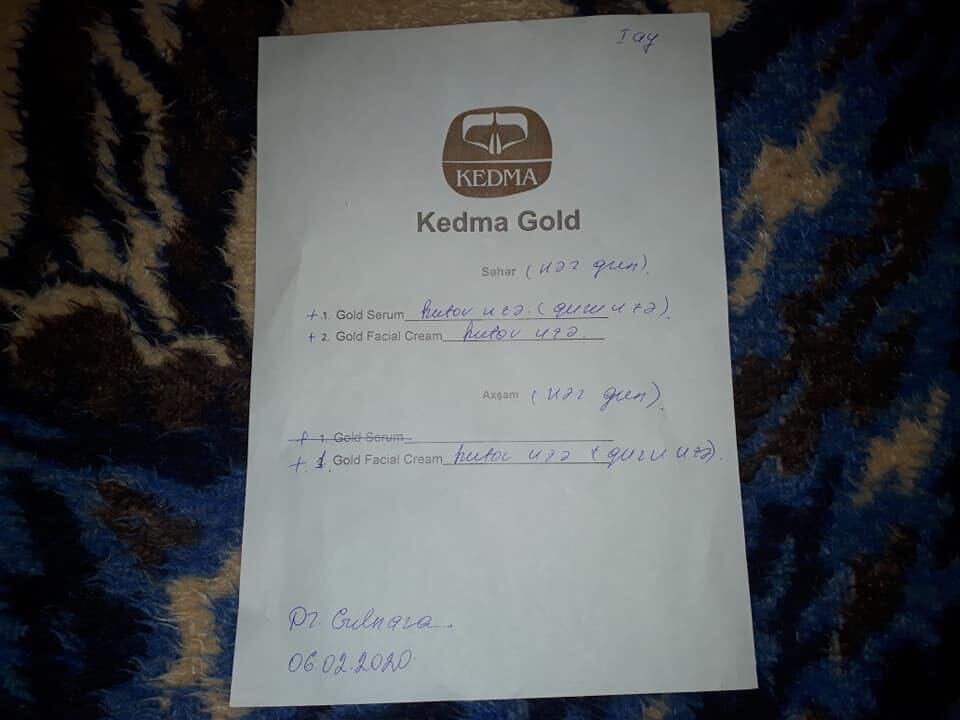 I ay
KEDMA
Kedma Gold
Səhər (hər gün).
+ 1. Gold Serum bütöv üzə. (quru üzə)
+ 2. Gold Facial Cream bütöv üzə.
Axşam (hər gün).
+ 1. Gold Serum
+. 1. Gold Facial Cream bütöv üzə (quru üzə).
Dr. Gulnara
06.02.2020